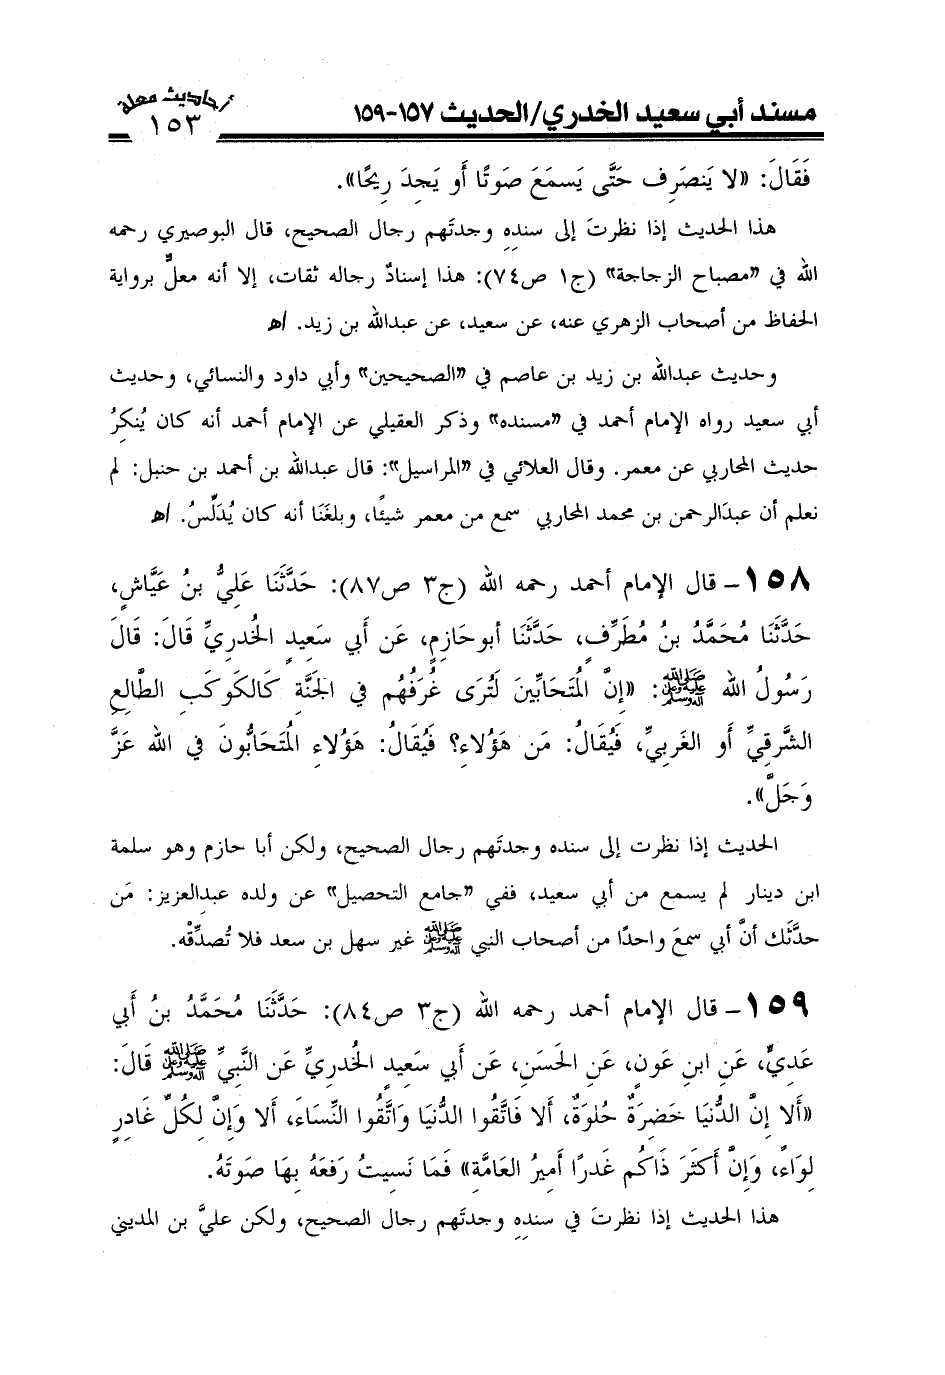 مسند أبي سعيد الخدري/الحديث ١٥٧-١٥٩
أحاديث معلة
١٥٣
فَقَالَ: «لا يَنصَرِف حَتَّى يَسمَعَ صَوتًا أَو يَجِدَ رِيحًا».
هذا الحديث إذا نظرتَ إلى سندِهِ وجدتَهم رجال الصحيح، قال البوصيري رحمه
الله في «مصباح الزجاجة» (ج١ ص٧٤): هذا إسنادٌ رجاله ثقات، إلا أنه معلٌّ برواية
الحفاظ من أصحاب الزهري عنه، عن سعيد، عن عبدالله بن زيد. اهـ
وحديث عبدالله بن زيد بن عاصم في «الصحيحين» وأبي داود والنسائي، وحديث
أبي سعيد رواه الإمام أحمد في «مسنده» وذكر العقيلي عن الإمام أحمد أنه كان يُنكِرُ
حديث المحاربي عن معمر. وقال العلائي في «المراسيل»: قال عبدالله بن أحمد بن حنبل: لم
نعلم أن عبدَالرحمن بن محمد المحاربي سمع من معمر شيئًا، وبلغَنَا أنه كان يُدَلِّسُ. اهـ
١٥٨- قال الإمام أحمد رحمه الله (ج٣ ص٨٧): حَدَّثَنَا عَلِيُّ بنُ عَيَّاشٍ،
حَدَّثَنَا مُحَمَّدُ بنُ مُطَرِّفٍ، حَدَّثَنَا أَبوحَازِمٍ، عَن أَبي سَعِيدٍ الخُدرِيِّ قَالَ: قَالَ
رَسُولُ الله ﷺ: «إِنَّ المُتَحَابِّينَ لَتُرَى غُرَفُهُم فِي الجَنَّةِ كَالكَوكَبِ الطَّالِعِ
الشَّرقِيِّ أَو الغَربِيِّ، فَيُقَالُ: مَن هَؤُلاءِ؟ فَيُقَالُ: هَؤُلاءِ المُتَحَابُّونَ فِي الله عَزَّ
وَجَلَّ».
الحديث إذا نظرت إلى سنده وجدتَهم رجال الصحيح، ولكن أبا حازم وهو سلمة
ابن دينار لم يسمع من أبي سعيد، ففي «جامع التحصيل» عن ولده عبدالعزيز: مَن
حدَّثَك أنَّ أبي سمعَ واحدًا من أصحاب النبي ﷺ غير سهل بن سعد فلا تُصدِّقْه.
١٥٩- قال الإمام أحمد رحمه الله (ج٣ ص٨٤): حَدَّثَنَا مُحَمَّدُ بنُ أَبي
عَدِيٍّ، عَنِ ابنِ عَونٍ، عَنِ الحَسَنِ، عَن أَبي سَعِيدٍ الخُدرِيِّ عَنِ النَّبِيِّ ﷺ قَالَ:
«أَلا إِنَّ الدُّنيَا خَضِرَةٌ حُلوَةٌ، أَلا فَاتَّقُوا الدُّنيَا وَاتَّقُوا النِّسَاءَ، أَلا وَإِنَّ لِكُلِّ غَادِرٍ
لِوَاءً، وَإِنَّ أَكثَرَ ذَاكُم غَدرًا أَمِيرُ العَامَّةِ» فَمَا نَسِيتُ رَفعَهُ بِهَا صَوتَهُ.
هذا الحديث إذا نظرتَ في سندِهِ وجدتَهم رجال الصحيح، ولكن عليَّ بن المديني